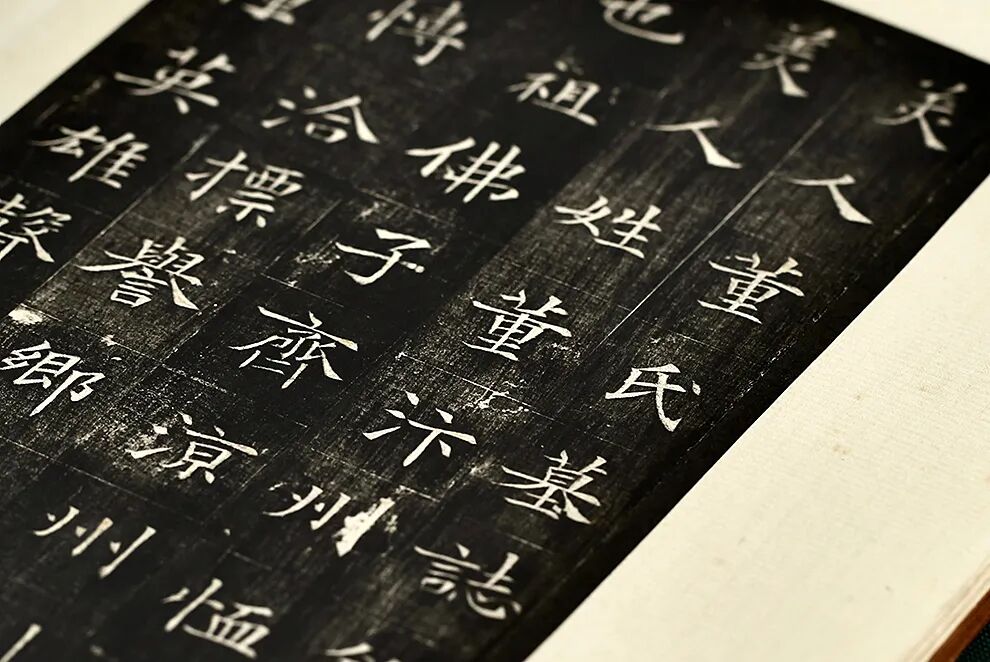 美人董氏墓誌
美人姓董汴州恤
也祖佛子齊涼州
愽洽標譽鄉
英雄聲